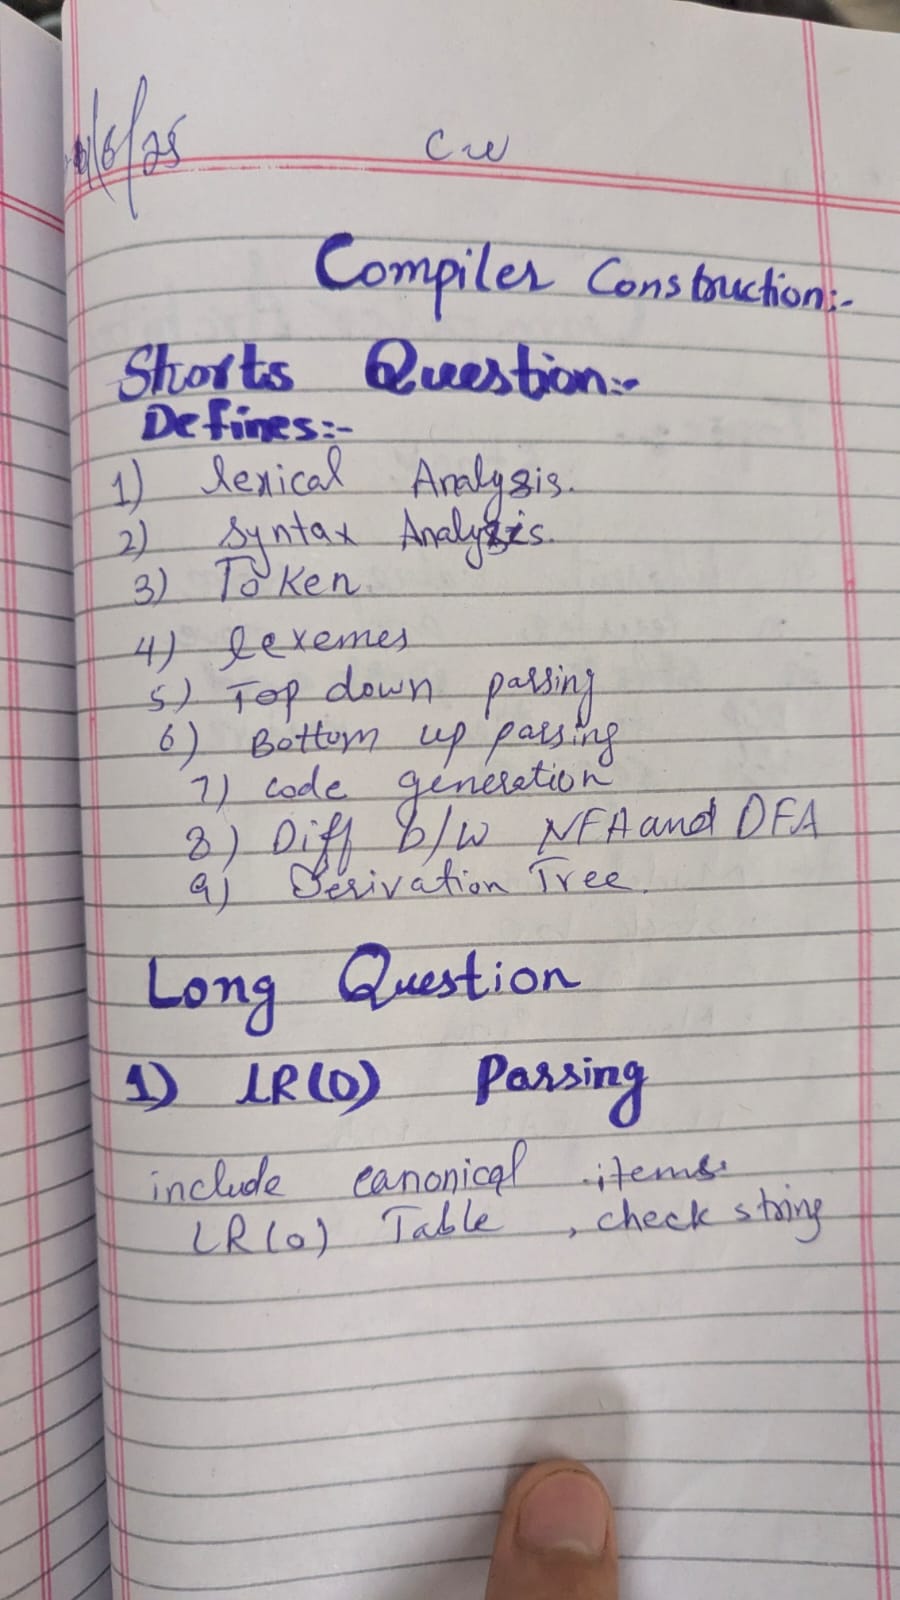 /6/25
CW
Compiler Construction:-
Shorts Question:-
Defines:-
1) lexical Analysis.
2) Syntax Analysis.
3) Token.
4) lexemes
5) Top down passing
6) Bottom up passing
7) code generation
8) Diff b/w NFA and DFA
9) Derivation Tree.
Long Question
1) LR(0) Passing
include canonical items
LR(0) Table , check string